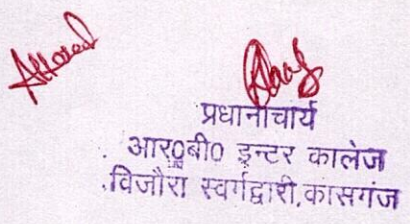 Attested
प्रधानाचार्य
आर०बी० इन्टर कालेज
विजौरा स्वर्गद्वारी,कासगंज